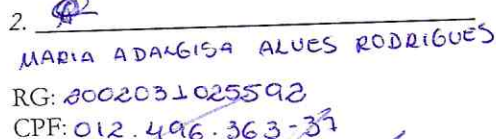 2.
MARIA ADALGISA ALVES RODRIGUES
RG: 2002031025592
CPF: 012.496.363-37